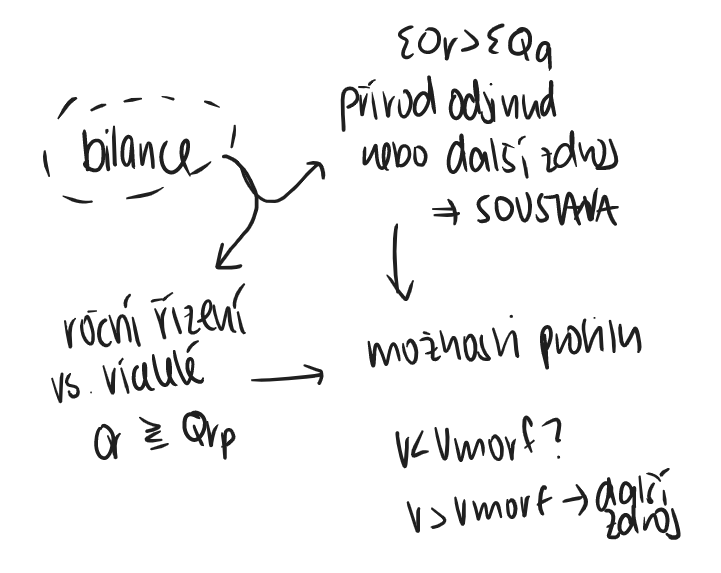 bilance
ΣOr > ΣQa
přívod odjinud
nebo další zdroj
⇒ SOUSTAVA
roční řízení
vs. víceleté
Or ≧ Qrp
možnosti profilu
V < Vmorf?
V > Vmorf → další
zdroj